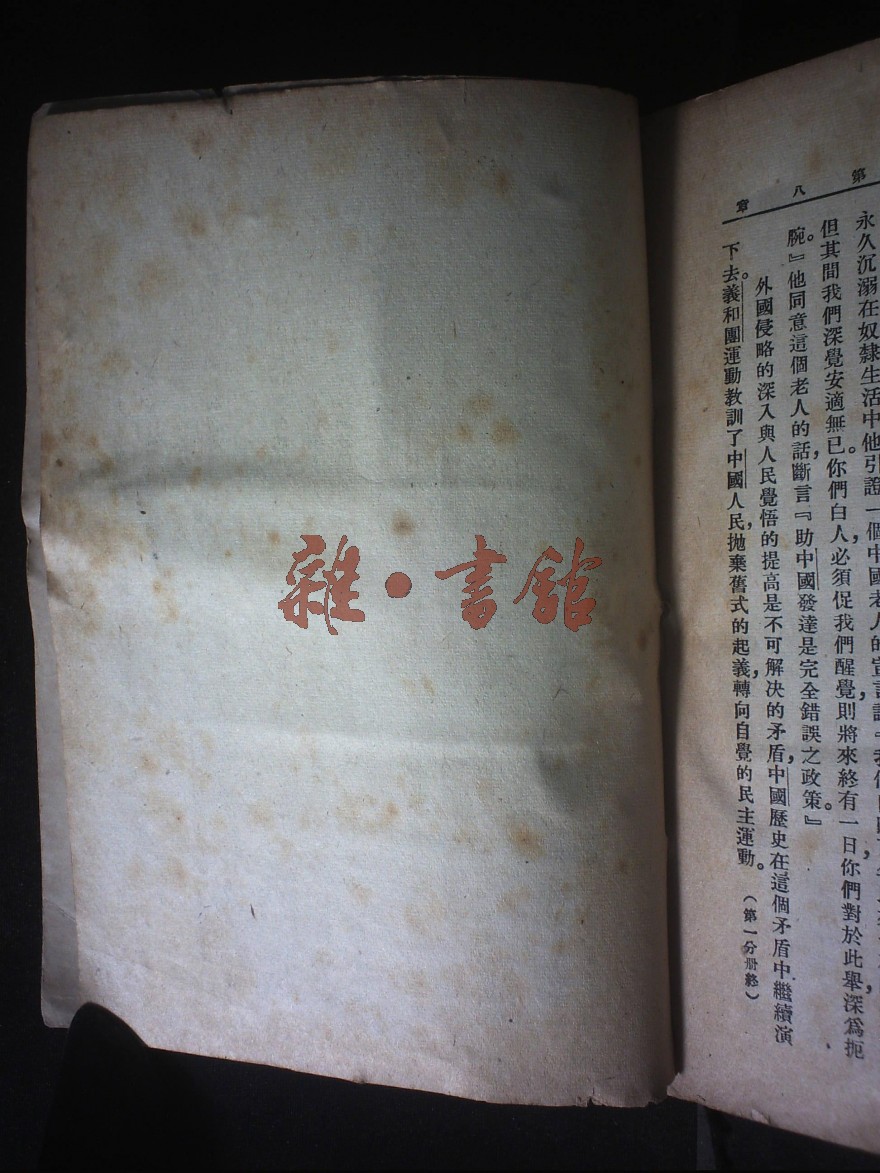 第八章
永久沉溺在奴隸生活中他引證一個中國老人的宣言說『我們
但其間我們深覺安適無已。你們白人,必須促我們醒覺,則將來終有一日,你們對於此舉深爲扼
腕。』他同意這個老人的話,斷言『助中國發達是完全錯誤之政策。』
外國侵略的深入與人民覺悟的提高是不可解決的矛盾,中國歷史在這個矛盾中繼續演
下去。義和團運動教訓了中國人民,拋棄舊式的起義,轉向自覺的民主運動。
(第一分册終)
雜•書館